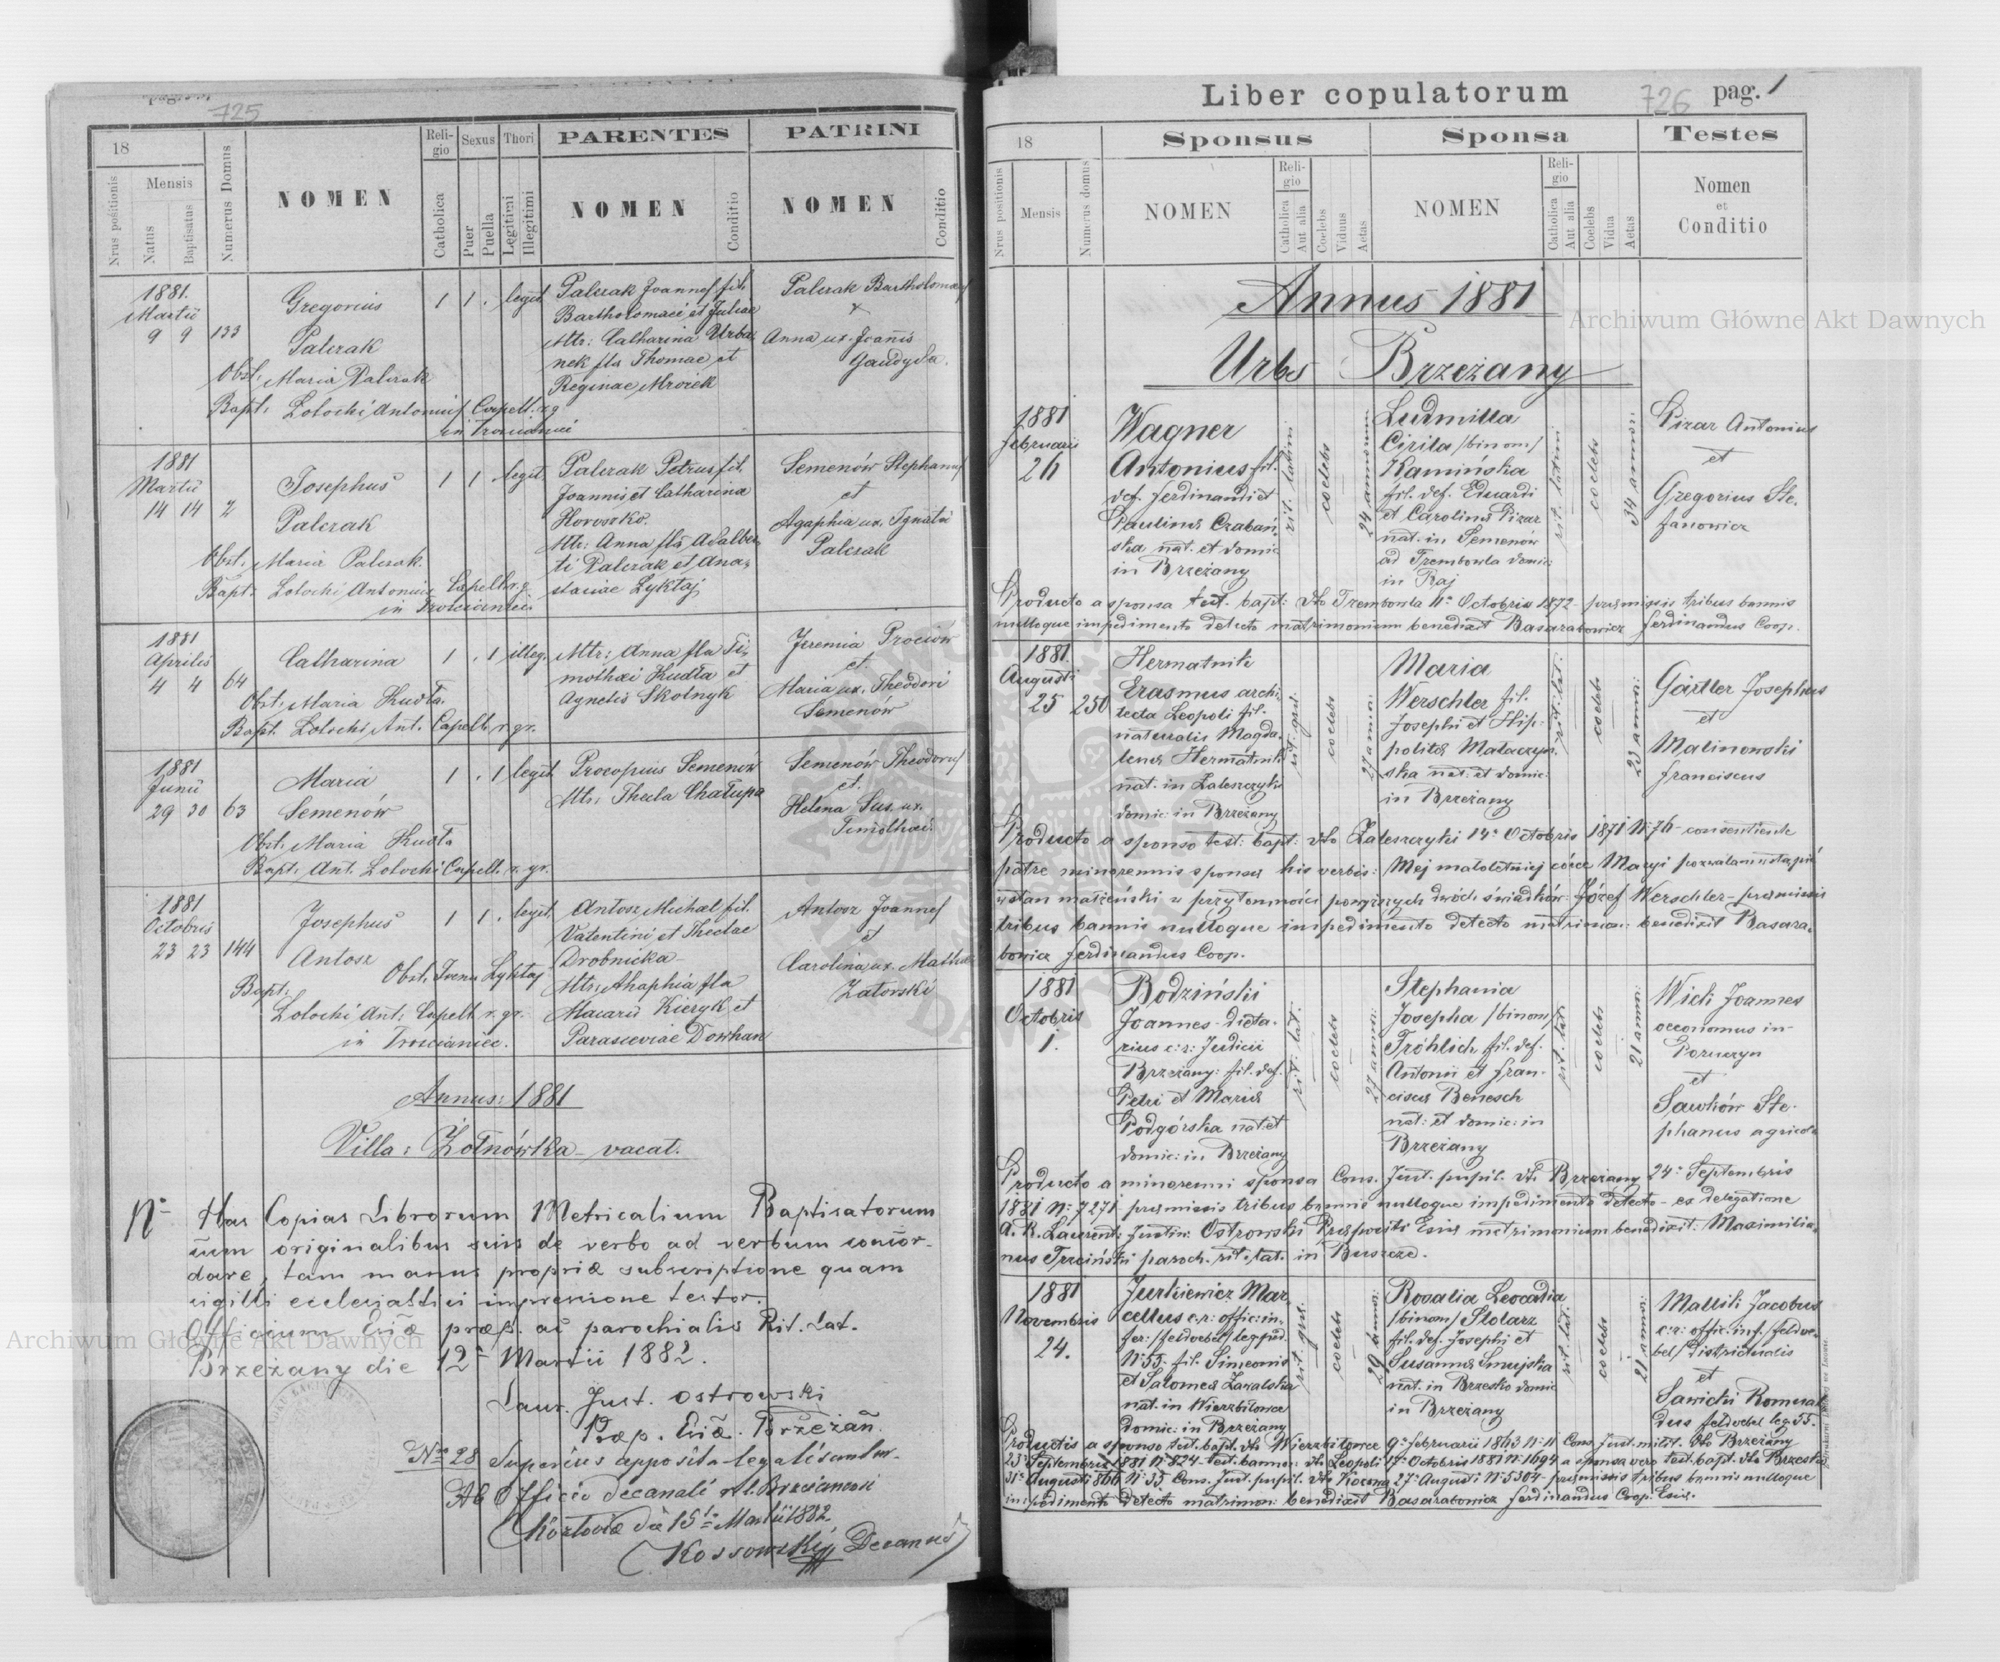 725
18
Mensis
Nrus positionis
Natus
Baptisatus
Numerus Domus
NOMEN
Religio
Catholica
Sexus
Puer
Puella
Thori
Legitimi
Illegitimi
PARENTES
NOMEN
Conditio
PATRINI
NOMEN
Conditio
1881.
Martii
9 9 133
Gregorius
Palczak
1 1 . legit.
Palczak Joannes fil.
Bartholomaei et Juliae
Mtr: Catharina Urba-
nek fla Thomae et
Reginae Mrozek
Palczak Bartholomaeus
x
Anna ux. Joannis
Gawdyda.
Obst. Maria Palczak
Bapt. Lotocki Antonius Capell. r. g.
in Trościaniec
1881
Martii
14 14 2
Josephus
Palczak
1 1 legit.
Palczak Petrus fil.
Joannis et Catharina
Horoszko.
Mtr: Anna fla Adalber-
ti Palczak et Ana-
stasiae Lyktaj
Semenów Stephanus
et
Agaphia ux. Ignatii
Palczak
Obst. Maria Palczak
Bapt: Lotocki Antonius Capell. r. g.
in Trościaniec
1881
Aprilis
4 4 64
Catharina
1 . 1 illeg.
Mtr: Anna fla Ti-
mothaei Kudła et
Agnetis Skolnyk
Jeremia Prociów
et
Maria ux. Theodori
Semenów
Obst. Maria Kudła.
Bapt. Lotocki Ant. Capell. r. gr.
1881
Junii
29 30 63
Maria
Semenów
1 . 1 legit.
Procopius Semenów
Mtr: Thecla Chałupa
Semenów Theodorus
et
Helena Sus ux.
Timothaei
Obst. Maria Kudła
Bapt. Ant. Lotocki Capell. r. gr.
1881
Octobris
23 23 144
Josephus
Antosz
1 1 . legit.
Antosz Michael fil.
Valentini et Theclae
Drobnicka
Mtr: Ahaphia fla
Macarii Kieryk et
Parasceviae Dowhan
Antosz Joannes
et
Carolina ux. Mathaei
Zatorski
Obst. Ivena Lyktaj
Bapt:
Lotocki Ant: Capell. r. gr.
in Trościaniec.
Annus: 1881
Villa: Żołnówka - vacat.
Has Copias Librorum Metricalium Baptisatorum
cum originalibus suis de verbo ad verbum concor-
dare, tam manus propriæ subscriptione quam
sigilli ecclesiastici impressione testor.
Officium Eccliæ præp. ac parochialis Rit. Lat.
Brzeżany die 12 Martii 1882.
Laur. Just. Ostrowski
Præp. Eccliæ. Brzeżan.
No 28 Superius apposita legalisantur.
Ab Officio decanali r. l. Brzeżanensi
Kozłoviæ die 15 Martii 1882
Kossowski Decanus
Liber copulatorum
726 pag. 1
18
Nrus positionis
Mensis
Numerus domus
Sponsus
NOMEN
Religio
Catholica
Aut alia
Coelebs
Viduus
Aetas
Sponsa
NOMEN
Religio
Catholica
Aut alia
Coelebs
Vidua
Aetas
Testes
Nomen
et
Conditio
Annus 1881
Urbs Brzeżany
1881
Februarii
26
Wagner
Antonius fil.
def. Ferdinandi et
Paulinæ Czabań-
ska nat. et domic
in Brzeżany
rit. latini
coelebs
24 annorum
Ludmilla
Cirila /binom/
Kamińska
fil. def. Eduardi
et Carolinæ Pizar
nat. in Semenow
ad Trembowla domic:
in Raj
rit. latini
coelebs
34 annor:
Pizar Antonius
et
Gregorius Ste-
fanowicz
Producto a sponsa test. bapt: dto Trembowla 11 Octobris 1872 - præmissis tribus bannis
nulloque impedimento detecto matrimonium benedixit Basarabowicz Ferdinandus Coop.
1881.
Augusti
25 250
Hermatnik
Erasmus archi-
tecta Leopoli fil.
naturalis Magda-
lenæ Hermatnik
nat. in Zaleszczyki
domic: in Brzeżany
coelebs
27 annor:
Maria
Werschler fil.
Josephi et Hip-
politæ Mataczyn-
ska nat: et domic:
in Brzeżany
rit: lat.
coelebs
23 annor:
Gärtler Josephus
et
Malinowski
Franciscus
Producto a sponso test: bapt: dto Zaleszczyki 14 Octobris 1871 N: 76 - consentiente
patre minorennis sponsæ his verbis: Mej małoletniej córce Maryi pozwalam wstąpić
w stan małżeński w przytomności powyższych dwóch świadków: Józef Werschler - præmissis
tribus bannis nulloque impedimento detecto matrimon: benedixit Basara-
bowicz Ferdinandus Coop.
1881
Octobris
1.
Bodziński
Joannes - dieta-
rius c: r: Judicii
Brzeżany: fil. def.
Petri et Mariæ
Podgórska nat. et
domic: in Brzeżany
rit: lat.
coelebs
27 annor:
Stephania
Josepha /binom/
Fröhlich fil. def.
Antonii et Fran-
ciscæ Benesch
nat: et domic: in
Brzeżany
rit: lat.
coelebs
21 annor:
Wich Joannes
oeconomus in
Poruczyn
et
Sawków Ste-
phanus agricola
Producto a minorenni sponsa Cons. Jud. pupil. dto Brzeżany 24 Septembris
1881 N: 7271 præmissis tribus bannis nulloque impedimento detecto - ex delegatione
A. R. Laurent: Justin: Ostrowski Præpositi Eccliæ matrimonium benedixit: Maximilia-
nus Trzciński paroch. rit. lat. in Buszcze.
1881
Novembris
24.
Jurkiewicz Mar-
cellus c: r: offic: in-
fer: /feldvebel/ leg. ped.
N: 55. fil. Simeonis
et Salomeæ Zawalska
nat. in Wierzbiłowce
domic: in Brzeżany
coelebs
29 annor:
Rosalia Leocadia
/binom/ Stolarz
fil. def. Josephi et
Susannæ Smujska
nat. in Brzesko domic
in Brzeżany
rit: lat.
coelebs
21 annor:
Mallik Jacobus
c: r: offic. inf. /feldve-
bel/ Districtualis
et
Sawicki Romual-
dus feldvebel leg. 55.
Productis a sponso test. bapt. dto Wierzbiłowce 9 Februarii 1863 N: 11 Cons. Jud. milit. dto Brzeżany
23 Septembris 1881 N: 824 test. bannor: dto Leopoli 17 Octobris 1881 N: 1694 a sponsa vero test. bapt. dto Brzesko
31 Augusti 866 N: 35 Cons. Jud. pupil. dto Kozowa 27 Augusti N: 5304 - præmissis tribus bannis nulloque
impedimento detecto matrimon: benedixit Basarabowicz Ferdinandus Coop. Eccliæ.
Archiwum Główne Akt Dawnych
Archiwum Główne Akt Dawnych